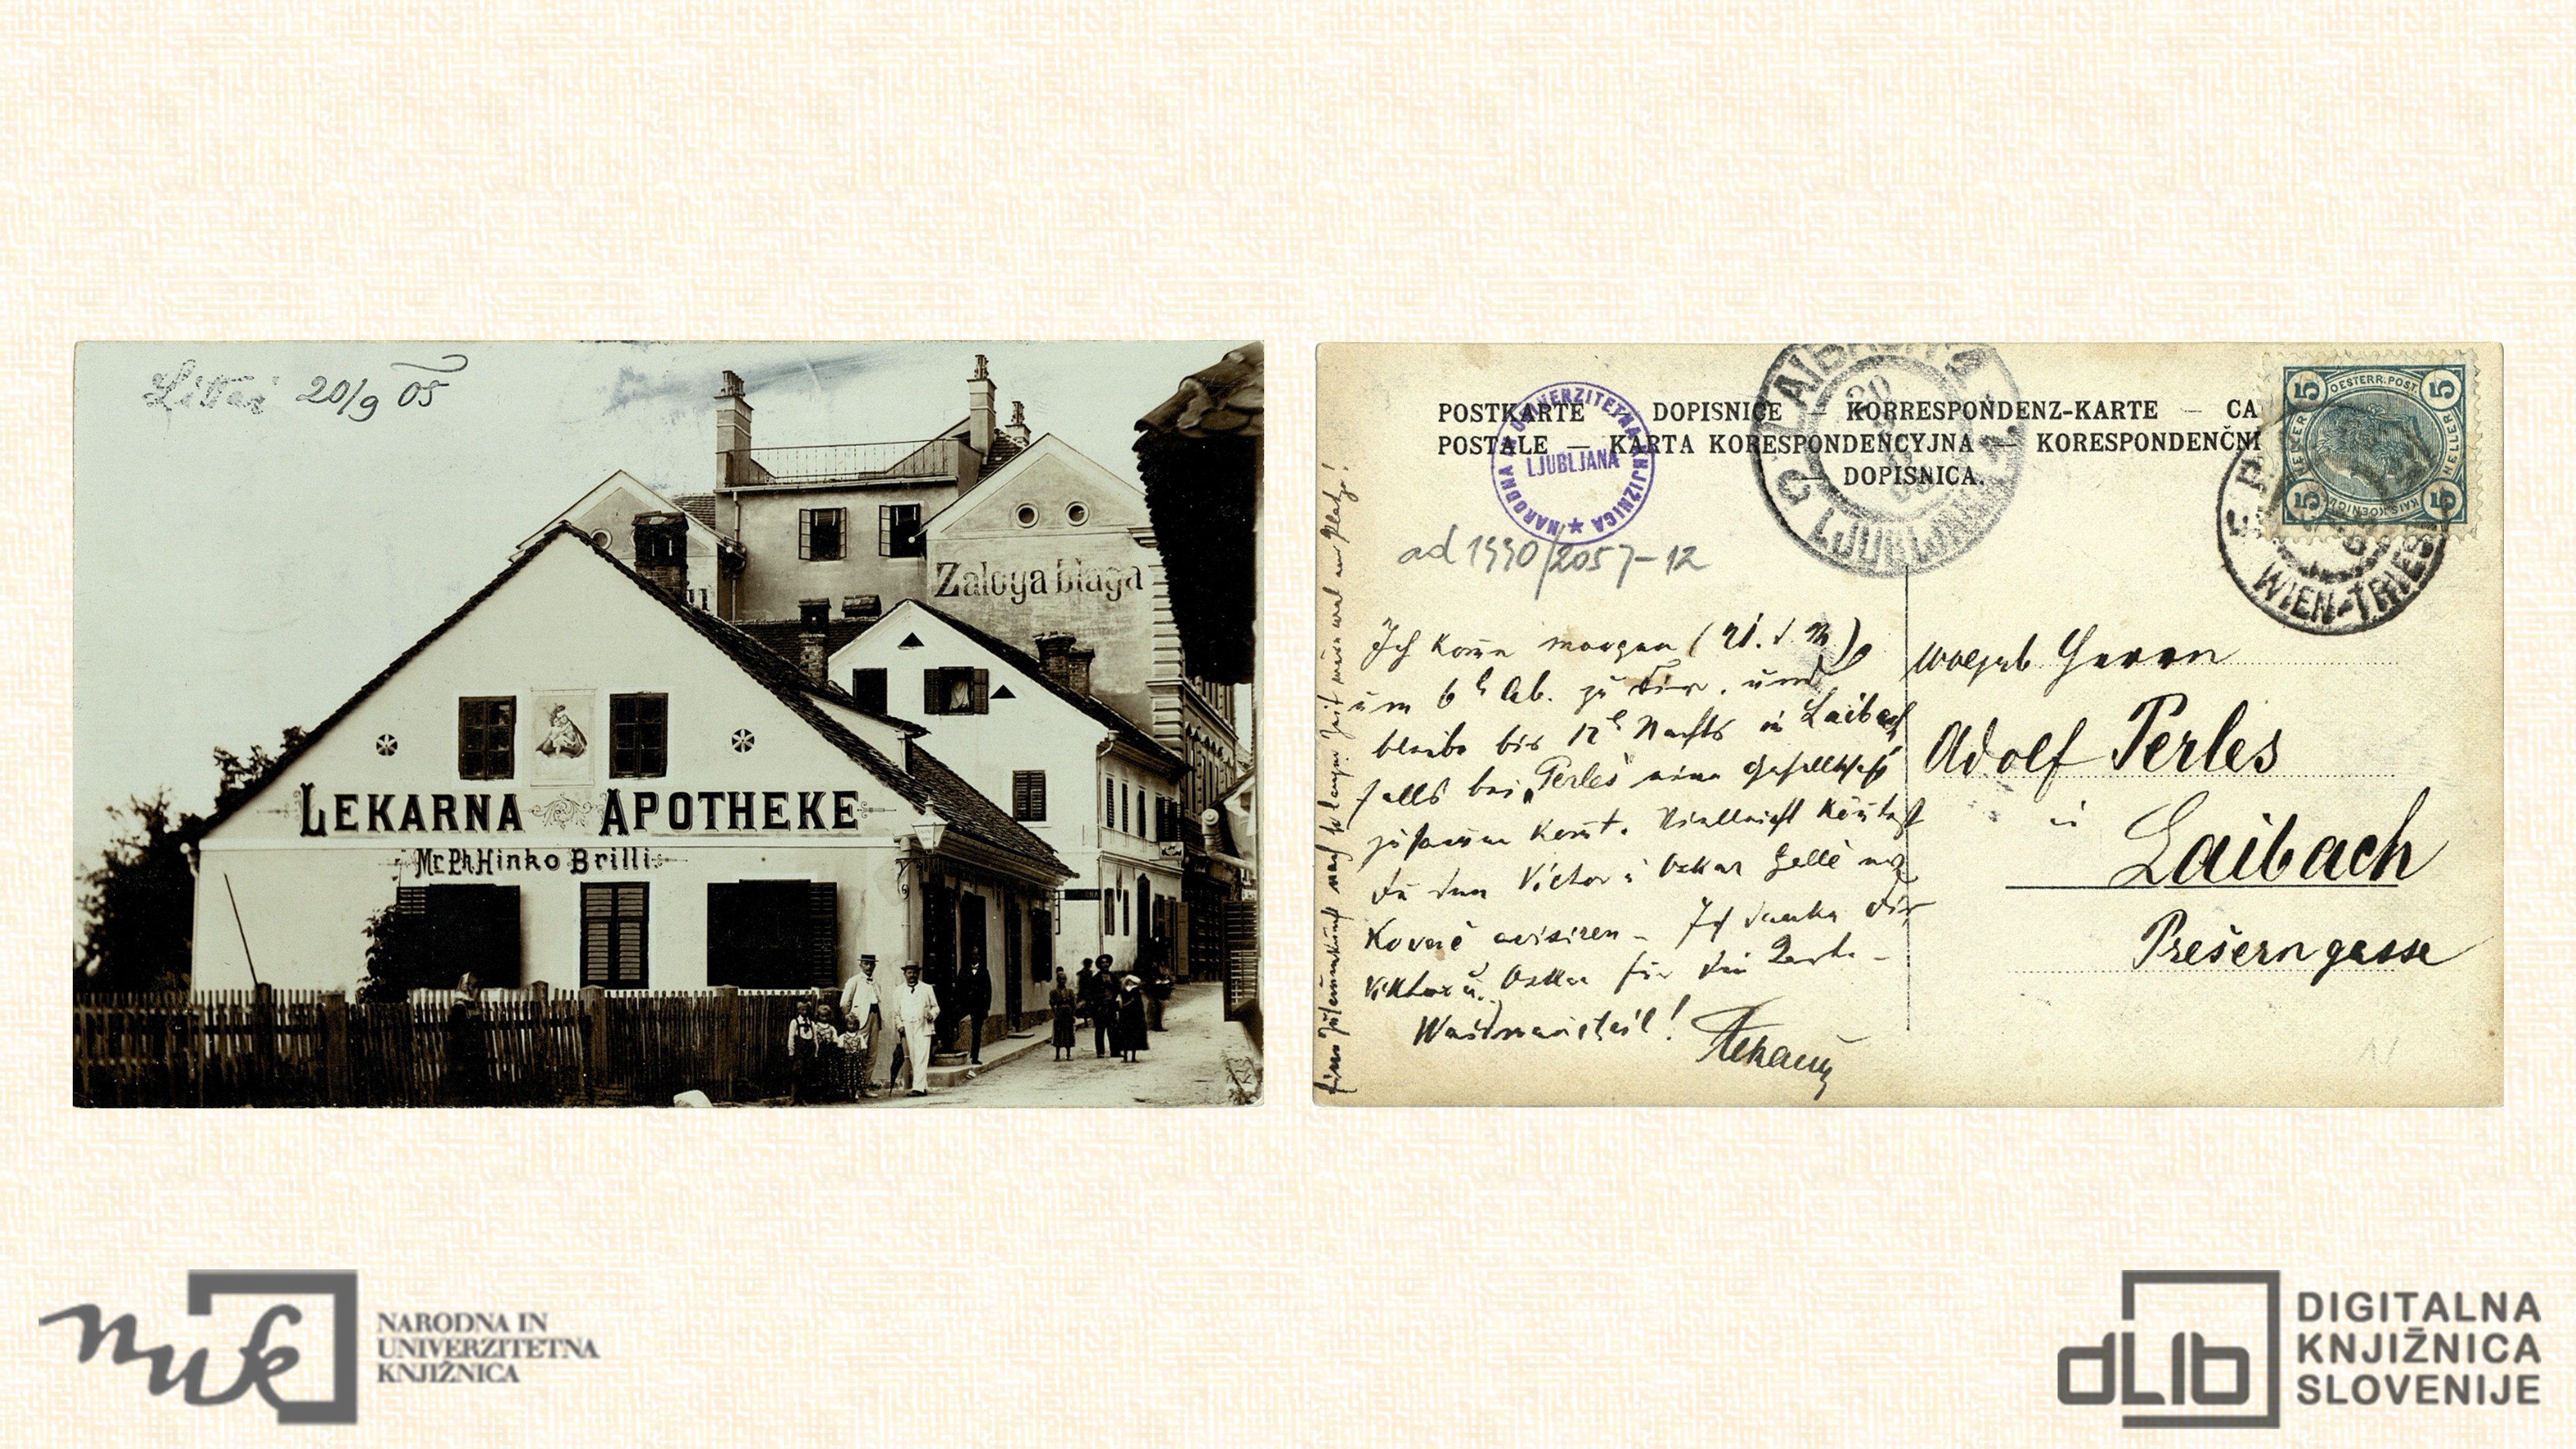 Littai 20/9 05
Zaloga blaga
LEKARNA APOTHEKE
Mr. Ph. Hinko Brilli
POSTKARTE — DOPISNICE — KORRESPONDENZ-KARTE — CA
POSTALE — KARTA KORESPONDENCYJNA — KORESPONDENČNI
— DOPISNICA.
NARODNA UNIVERZITETNA KNJIŽNICA
LJUBLJANA
LAIBACH
20
LJUBLJANA
5 OESTERR. POST. 5
HELLER HELLER
5 KAIS. KOENIGL. 5
WIEN-TRIEST
ad 1990/2057-12
Ich kome morgen (21. d. M.)
um 6h Ab. zu Dir. und
bleibe bis 12h Nachts in Laibach
falls bei „Perles eine Gesellschaft
zusamen komt. Vielleicht köntest
Du den Victor u Oskar
avisiren – Ich danke Dir
Viktor u. Oskar für die Karte –
Waidmansheil!
Herrn
Adolf Perles
in
Laibach
Prešerngasse
nuk
NARODNA IN
UNIVERZITETNA
KNJIŽNICA
dLib
DIGITALNA
KNJIŽNICA
SLOVENIJE